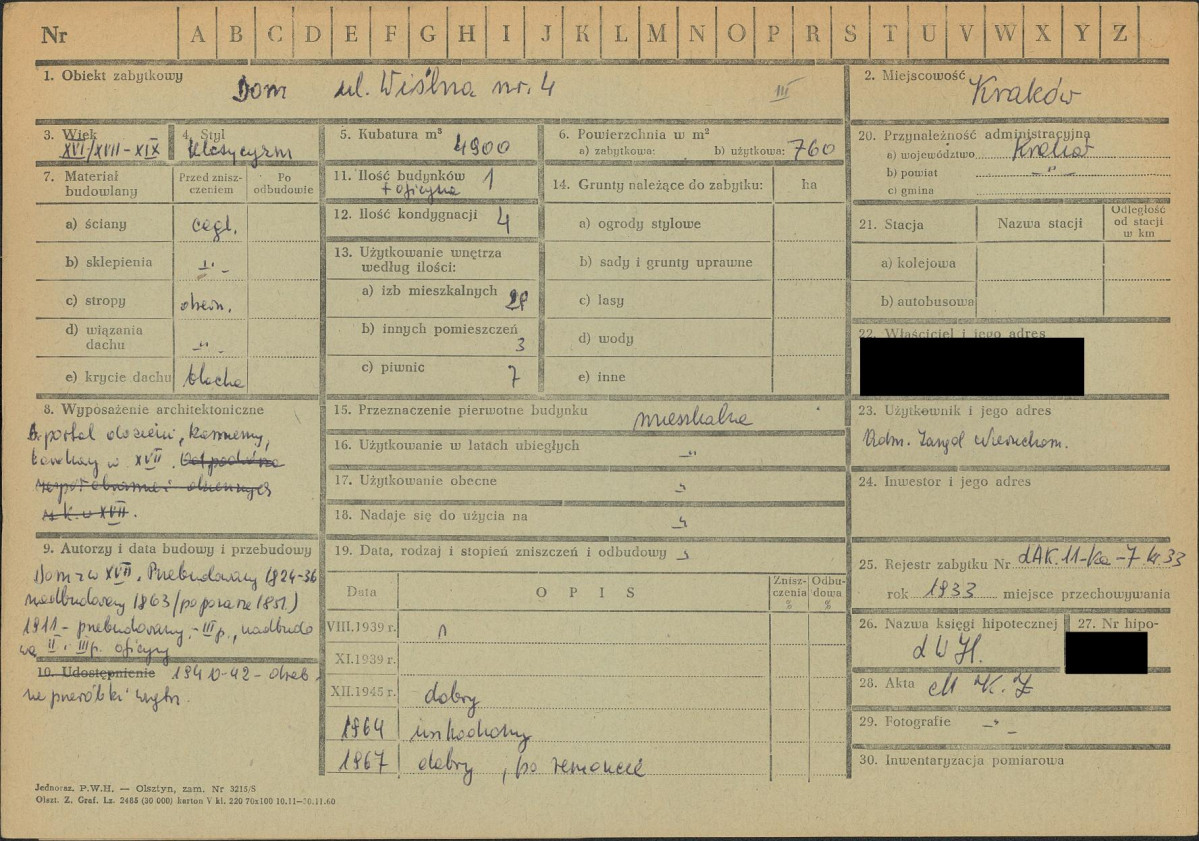 Nr A B C D E F G H I J K L M N O P R S T U V W X Y Z
1. Obiekt zabytkowy
Dom ul. Wiślna nr. 4
III
2. Miejscowość
Kraków
3. Wiek
XVI/XVII - XIX
4. Styl
klasycyzm
5. Kubatura m³
4900
6. Powierzchnia w m²
a) zabytkowa: b) użytkowa: 760
20. Przynależność administracyjna
a) województwo Kraków
b) powiat -"-
c) gmina
7. Materiał budowlany
Przed znisz-
czeniem
Po
odbudowie
a) ściany cegl.
b) sklepienia -"-
c) stropy drewn.
d) wiązania
dachu -"-
e) krycie dachu blacha
11. Ilość budynków 1
+ oficyna
12. Ilość kondygnacji 4
13. Użytkowanie wnętrza
według ilości:
a) izb mieszkalnych
b) innych pomieszczeń
3
c) piwnic 7
14. Grunty należące do zabytku: ha
a) ogrody stylowe
b) sady i grunty uprawne
c) lasy
d) wody
e) inne
21. Stacja Nazwa stacji
Odległość
od stacji
w km
a) kolejowa
b) autobusowa
22. Właściciel i jego adres
8. Wyposażenie architektoniczne
portal kamienny,
w XVII.
XVII.
15. Przeznaczenie pierwotne budynku mieszkalne
16. Użytkowanie w latach ubiegłych -"-
17. Użytkowanie obecne -"-
18. Nadaje się do użycia na -"-
23. Użytkownik i jego adres
Adm. Zarząd Nieruchom.
24. Inwestor i jego adres
9. Autorzy i data budowy i przebudowy
Dom z w XVII. Przebudowany 1824-36
nadbudowany 1863 (po pożarze 1851.)
1911 - przebudowany, - III p., nadbudo
wa II i III p. oficyny
10. Udostępnienie 1940-42 - drob
ne przeróbki wnętrz.
19. Data, rodzaj i stopień zniszczeń i odbudowy
Data O P I S
Znisz-
czenia
%
Odbu-
dowa
%
VIII.1939 r.
XI.1939 r.
XII.1945 r. dobry
1964 uszkodzony
1967 dobry, po remoncie
25. Rejestr zabytku Nr dAK.11-Ka-7.Kr.33
rok 1933 miejsce przechowywania
26. Nazwa księgi hipotecznej
27. Nr hipo-
28. Akta M K. Z
29. Fotografie -"-
30. Inwentaryzacja pomiarowa
Jednoraz. P.W.H. — Olsztyn, zam. Nr 3215/S
Olszt. Z. Graf. Lz. 2485 (30 000) karton V kl. 220 70x100 10.11—30.11.60